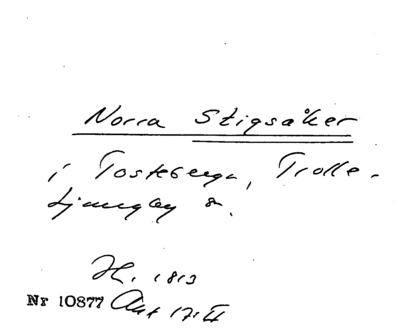 Norra Stigsåker
i Tosteberga, Trolle-
Ljungby s.
H. 1813
Nr 10877 Akt 17: II